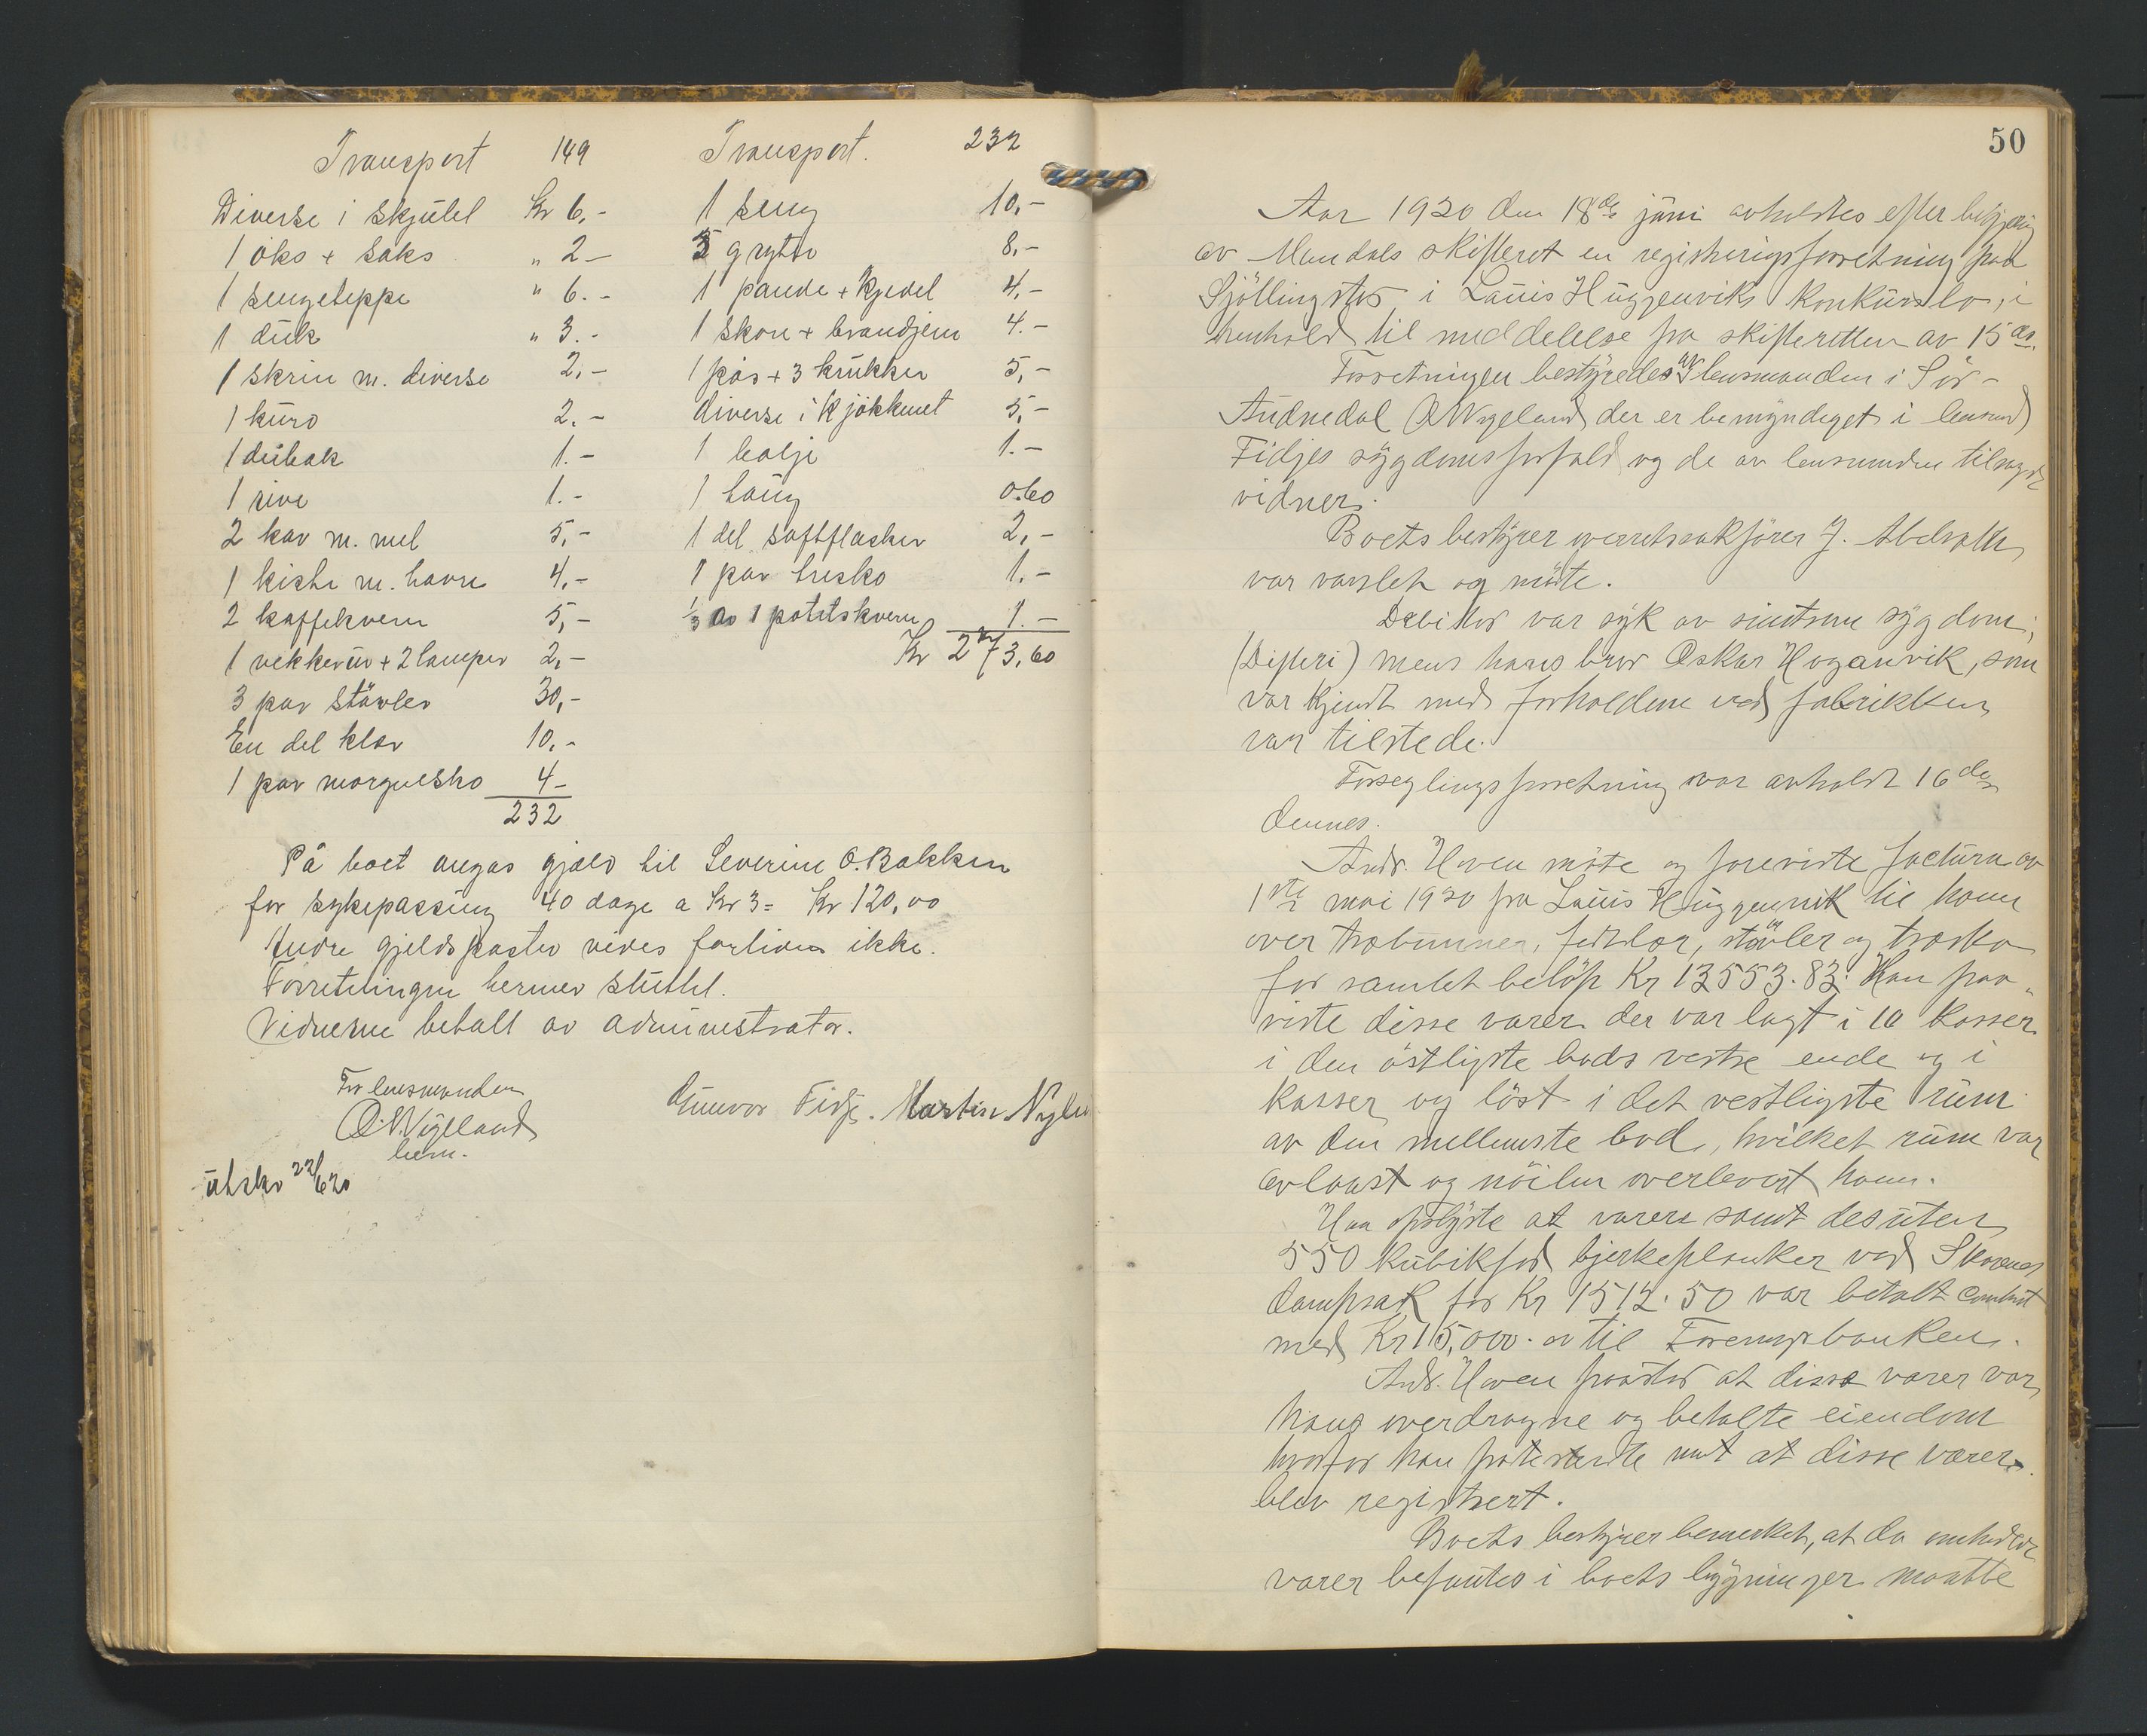 Transport 149
Diverse i skjulet Kr 6.-
1 øks + saks " 2 -
1 sengeteppe " 6. -
1 duk " 3. -
1 skrin m. diverse 2,-
1 kuro 2. -
1 1. -
1 rive 1. -
2 kar m. mel 5,-
1 kiste m. havre 4,-
2 kaffekvern 5,-
1 vekkerur + 2 lamper 2,-
3 par støvler 30,-
En del klær 10,-
1 par morgensko 4 -
232
Transport. 232
1 seng 10,-
5 gryter 8,-
1 pande + kjedel 4,-
1 skore + brandjern 4. -
1 pøs + 3 krukker 5,-
diverse i kjøkkenet 5,-
1 balje 1. -
1 0.60
1 del saftflasker 2,-
1 par tresko 1. -
1/3 av 1 potetskvern 1. -
Kr 273,60
På boet angas gjæld til Severine O. Bakken
for sykepassing 40 dage a Kr 3 = Kr 120,00
Andre gjeldsposter vides forøvrig ikke.
Forretningen hermed sluttet.
Vidnerne betalt av administrator.
For lensmanden
O. N. Vigeland
bem.
Gunvor Fidje. Martin
utskr 22/6 20
50
Aar 1920 den 18de juni avholdtes efter begjæring
av Mandals skifteret en registreringsforretning paa
i Lauis Huggenviks konkursbo, i
henhold til meddelelse fra skifteretten av 15 ds.
Forretningen bestyredes av lensmanden i Sør-
Audnedal O N Vigeland der er bemyndiget i lensmd
Fidjes sygdomsforfald og de av lensmanden tilsagte
vidner.
Boets bestyrer overretssakfører J. Abelseth
var varslet og møtte.
Debitor var syk av smitsom sygdom,
(Difteri) mens hans bror Oskar Hoganvik, som
var kjendt med forholdene ved fabrikken
var tilstede.
Forseglingsforretning var avholdt 16de
dennes.
Andr. Uven møtte og foreviste factura av
1ste mai 1920 fra Lauis Huggenvik til ham
over træbunner, fedtlær, støvler og træsko
for samlet beløp Kr 13553.83. Han paa-
viste disse varer der var lagt i 10 kasser
i den østligste bods vestre ende og i
kasser og løst i det vestligste rum
av den mellemste bod, hvilket rum var
avlaast og nøilen overlevert ham.
Han opslyste at varene samt desuten
550 kubikfod bjerkeplanker ved
dampsak for Kr 1512.50 var betalt contant
med Kr 15,000. - til Foreningsbanken.
Andr. Uven paastod at disse varer var
hans overdragne og betalte eiendom
hvorfor han protesterte mot at disse varer
blev registrert.
Boets bestyrer bemerket, at da omhandlede
varer befantes i boets bygninger maatte